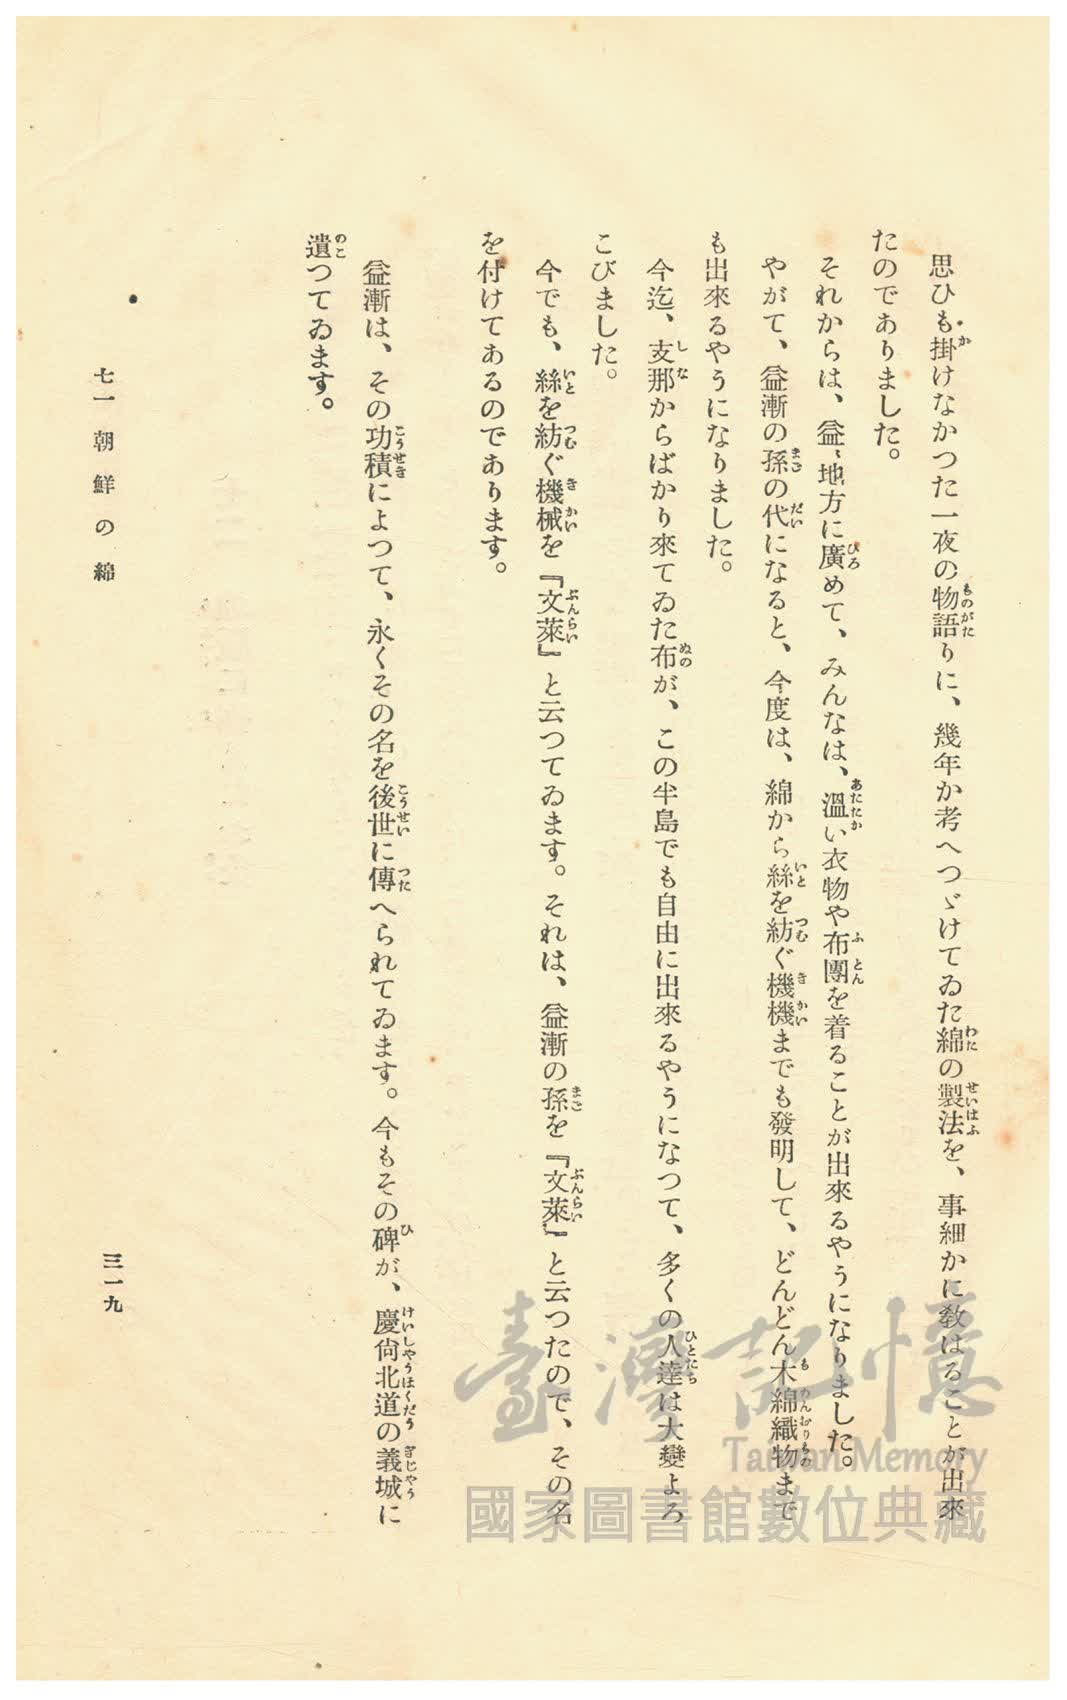 思ひも掛けなかつた一夜の物語りに、幾年か考へつゞけてゐた綿の製法を、事細かに敎はることが出來
たのでありました。
それからは、益〻地方に廣めて、みんなは、溫い衣物や布團を着ることが出來るやうになりました。
やがて、益漸の孫の代になると、今度は、綿から絲を紡ぐ機機までも發明して、どんどん木綿織物まで
も出來るやうになりました。
今迄、支那からばかり來てゐた布が、この半島でも自由に出來るやうになつて、多くの人達は大變よろ
こびました。
今でも、絲を紡ぐ機械を『文萊』と云つてゐます。それは、益漸の孫を『文萊』と云つたので、その名
を付けてあるのであります。
益漸は、その功積によつて、永くその名を後世に傳へられてゐます。今もその碑が、慶尙北道の義城に
遺つてゐます。
七一 朝鮮の綿
三一九
臺灣記憶
Taiwan Memory
國家圖書館數位典藏